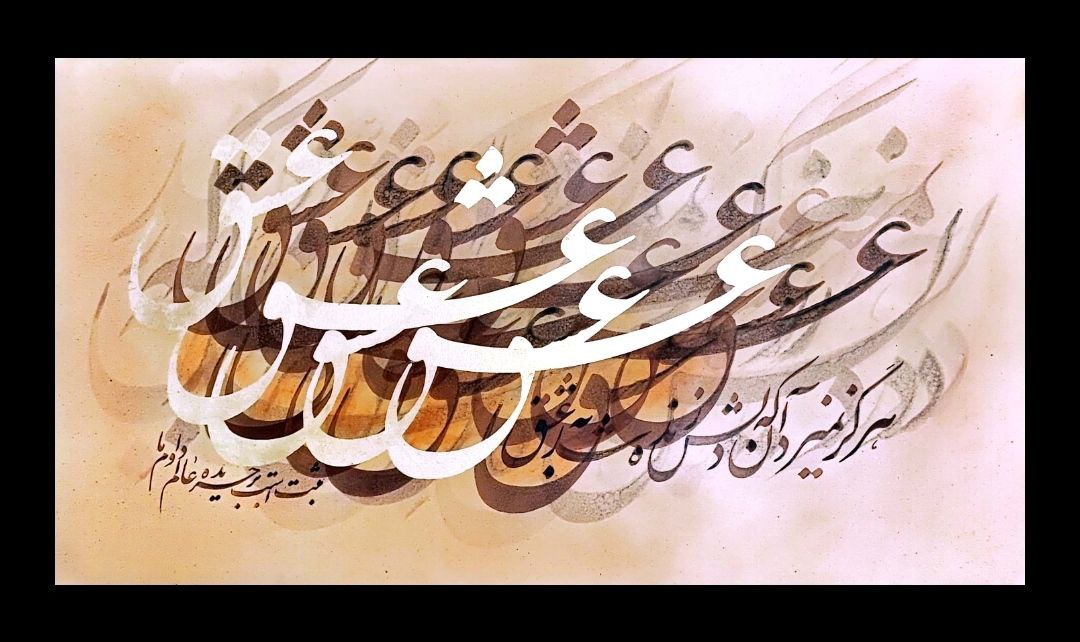 عشق
عشق
عشق
عشق
هرگز نمیرد آنکه دلش زنده شد به عشق
ثبت است بر جریده عالم دوام ما